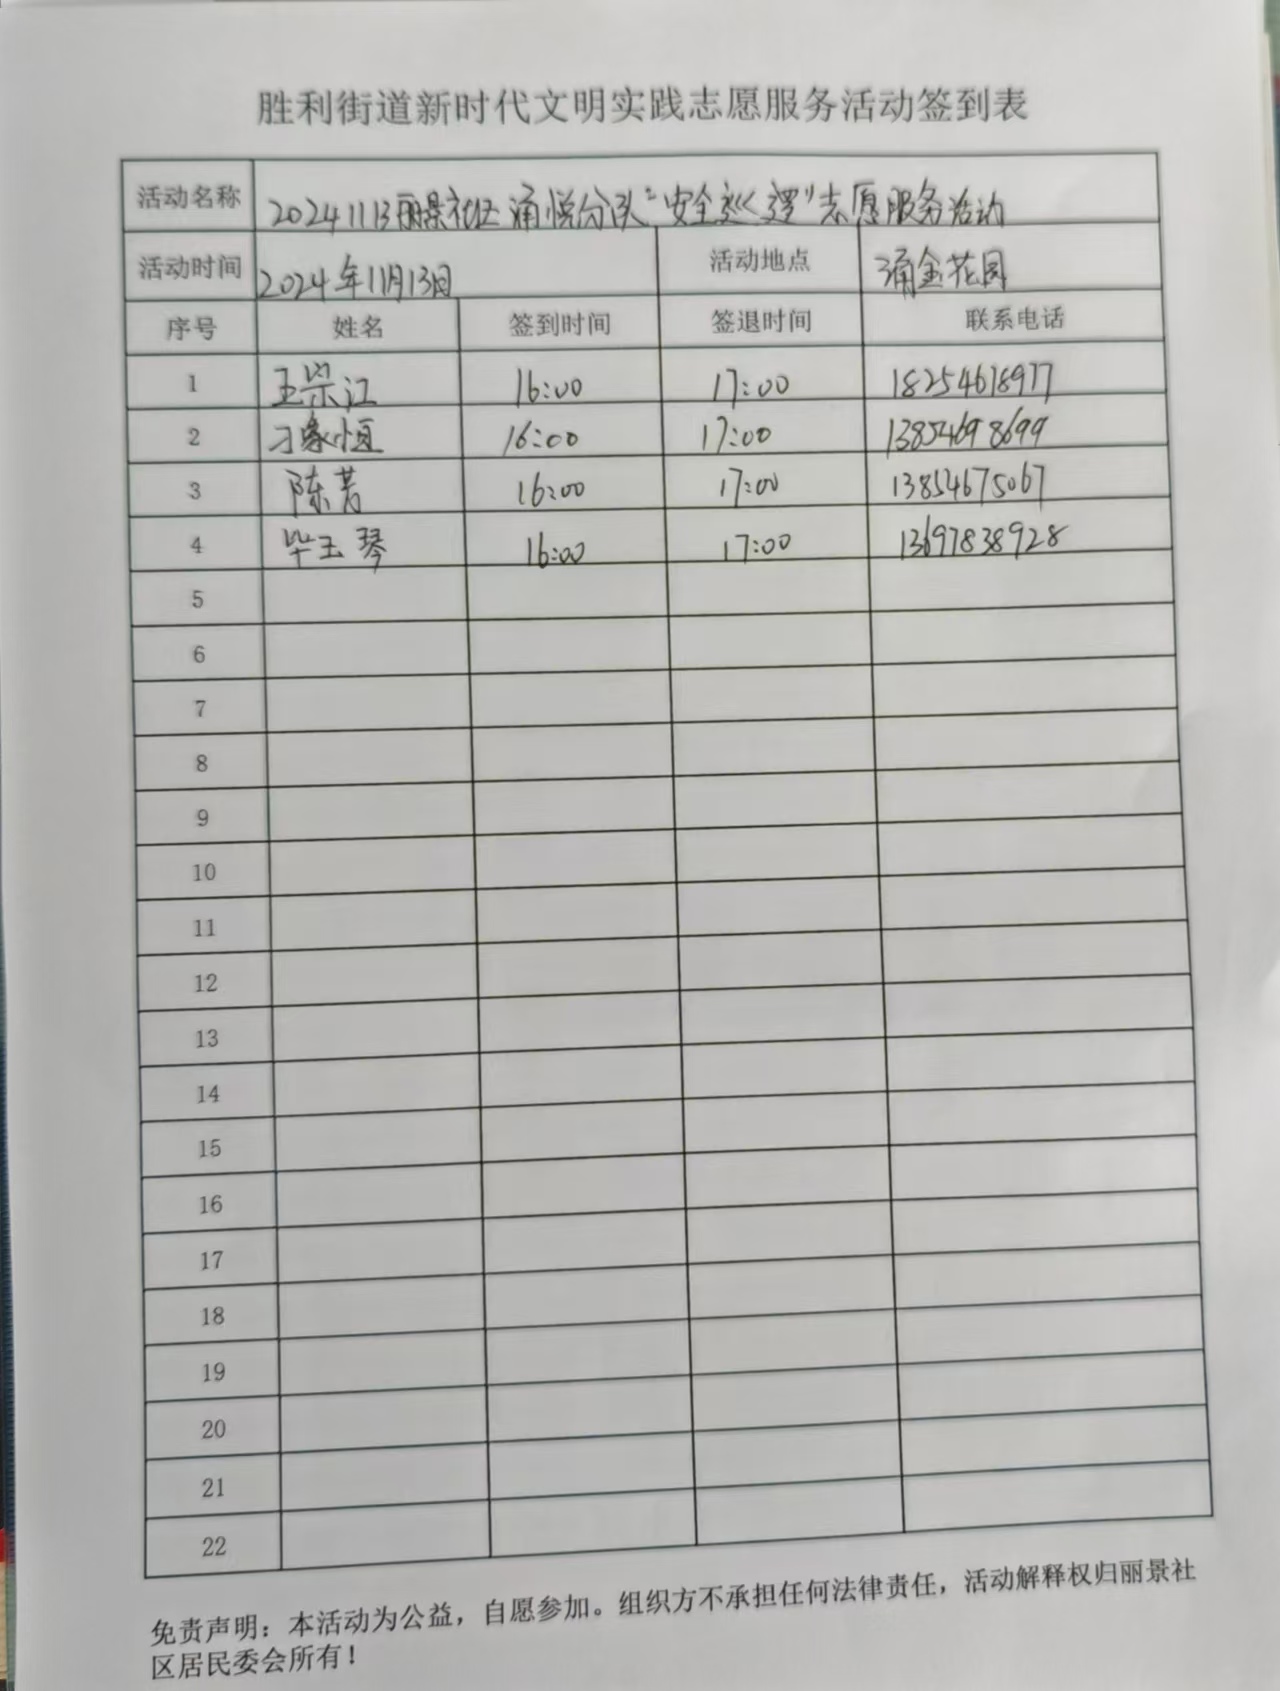 胜利街道新时代文明实践志愿服务活动签到表
活动名称 20241113丽景社区涌悦分队“安全巡逻”志愿服务活动
活动时间 2024年11月13日 活动地点 涌金花园
序号 姓名 签到时间 签退时间 联系电话
1 王崇江 16:00 17:00 18254678977
2 刁象恒 16:00 17:00 13854698699
3 陈芳 16:00 17:00 13854675067
4 毕玉琴 16:00 17:00 13697838928
5
6
7
8
9
10
11
12
13
14
15
16
17
18
19
20
21
22
免责声明：本活动为公益，自愿参加。组织方不承担任何法律责任，活动解释权归丽景社
区居民委会所有！